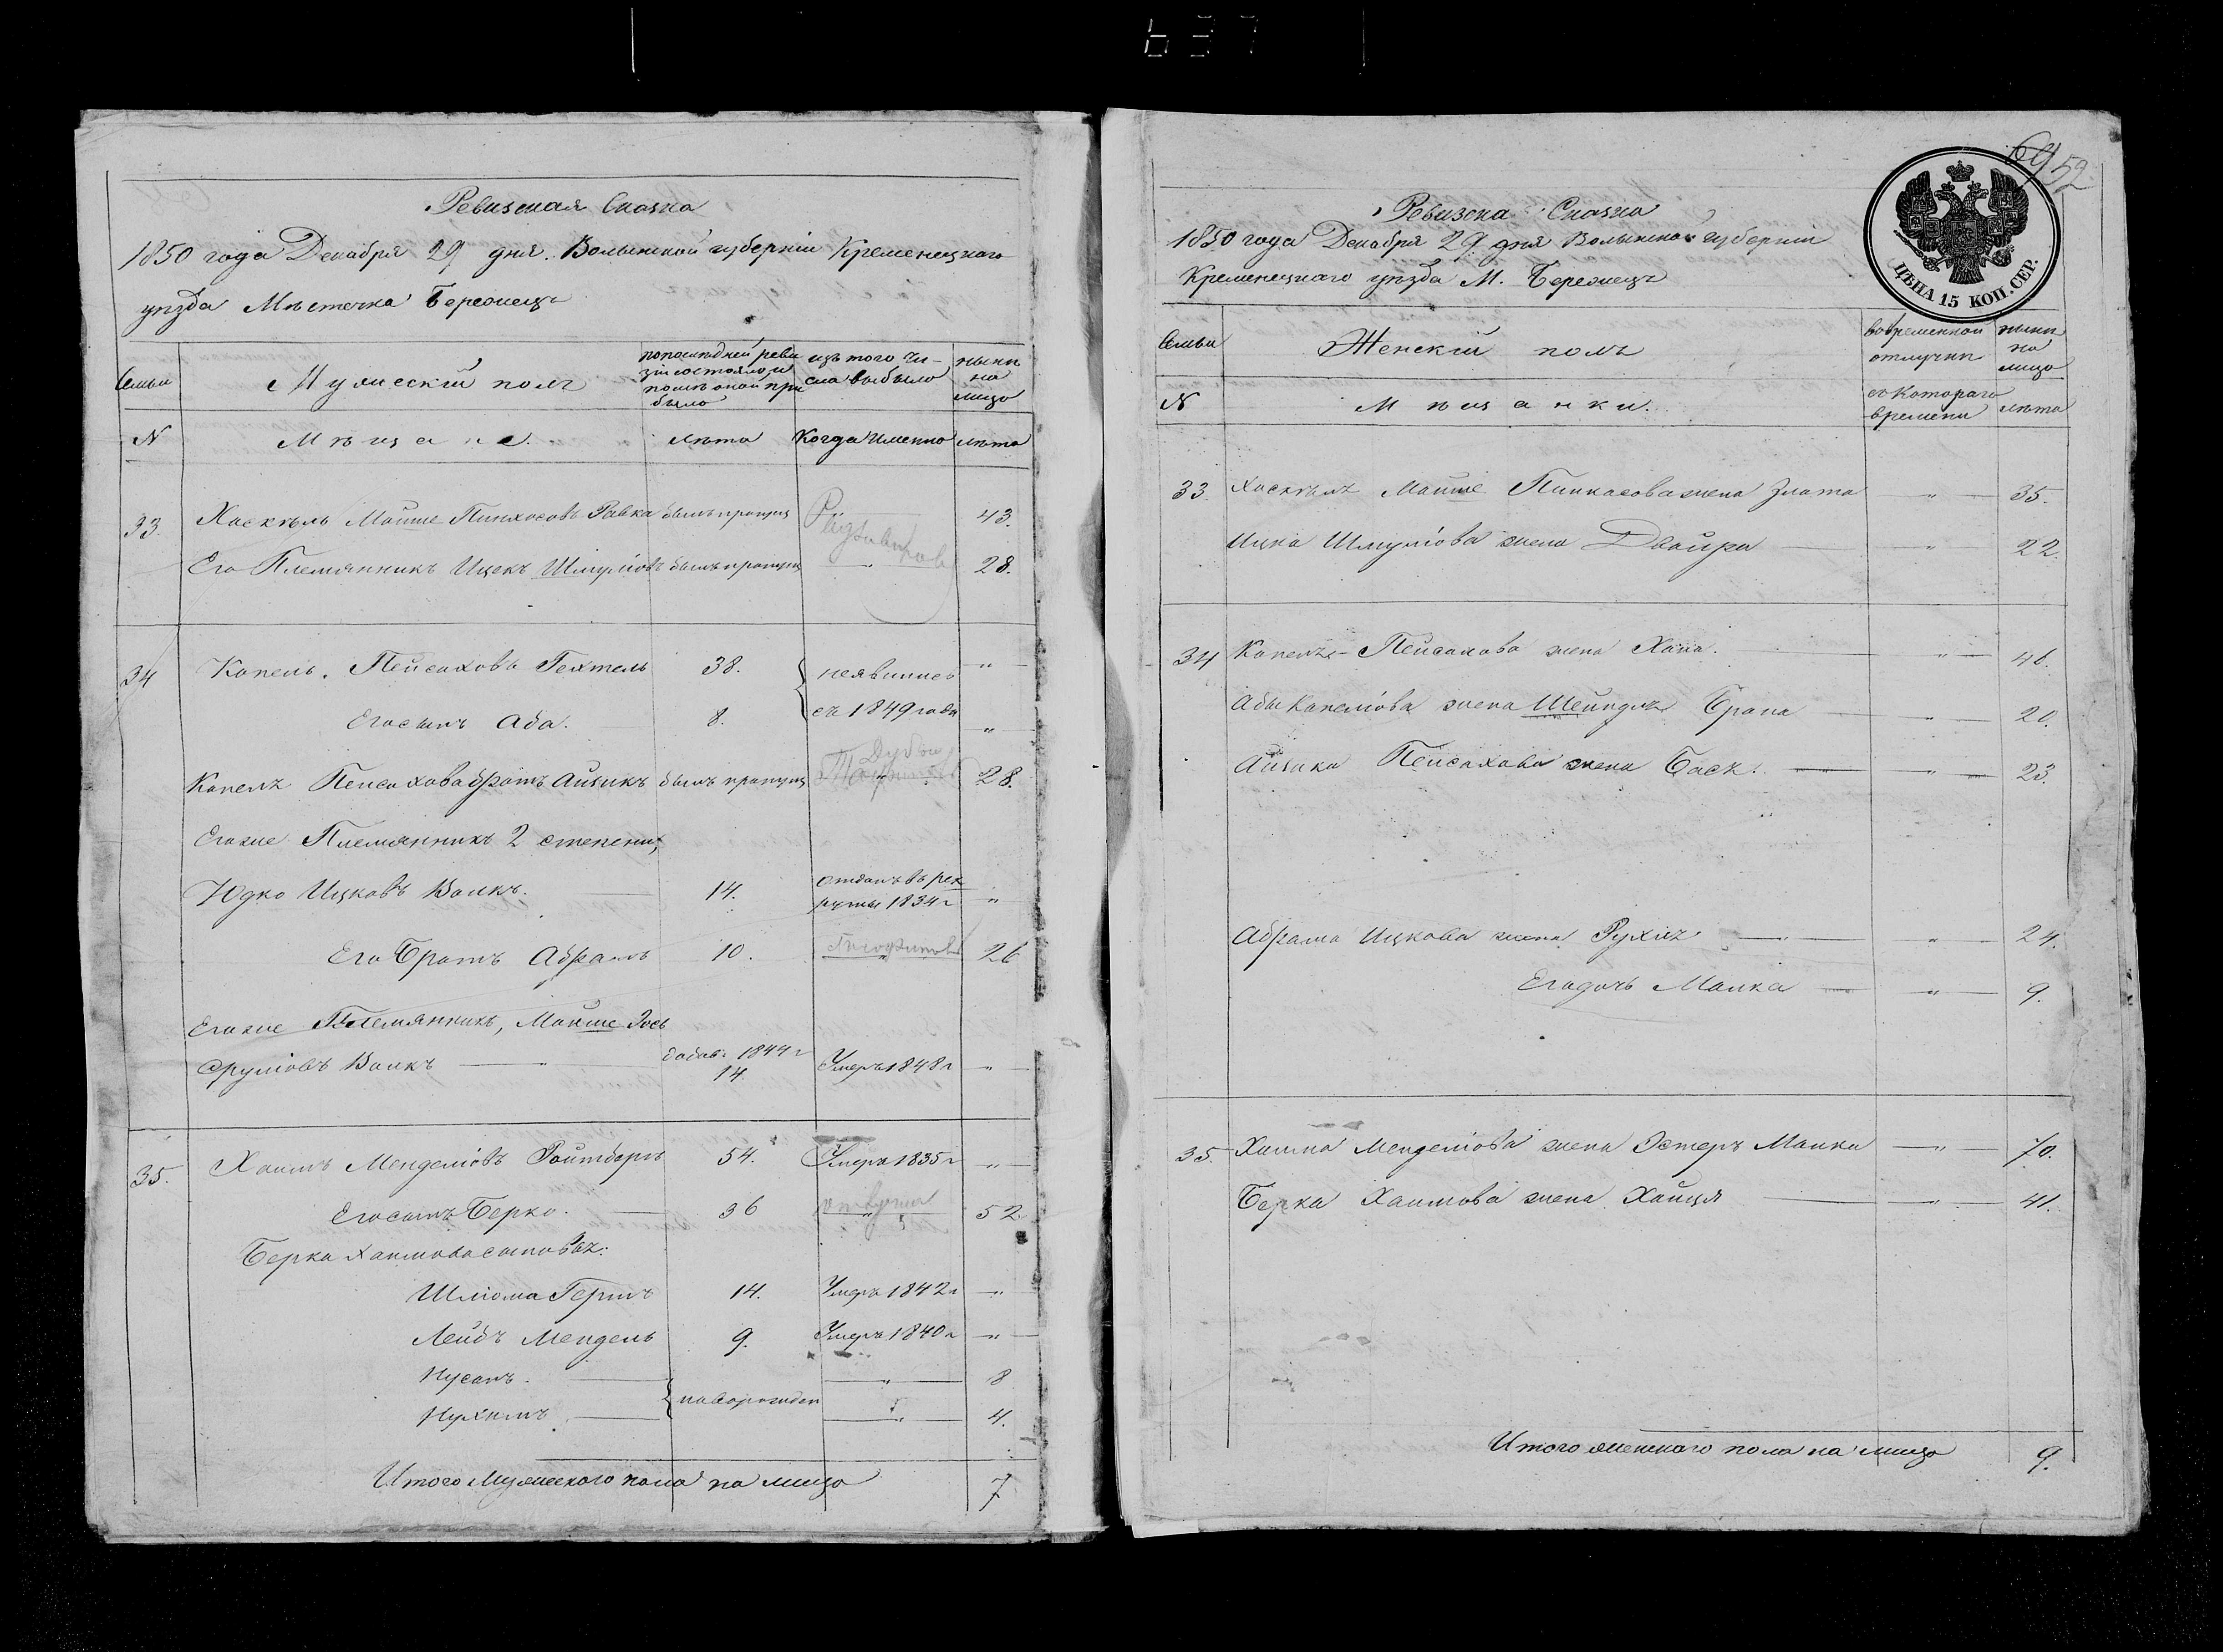 637
Ревизская Сказка
1850 года Декабря 29 дня. Волынской губерніи Кременецкаго
уѣзда Мѣстечка Бережецъ
Семьи
Мужескій полъ
по последней реви
зіи состояло и
послѣ оной при
было
изъ того чи-
сла выбыло
нынѣ
на
лицо
N
Мѣщане.
лѣта
Когда именно
лѣта
33. Хаскель Мойше Пинхасовъ Равка былъ пропущ " 43.
Его Племянникъ Ицекъ Шмуліовъ былъ пропущ " 28.
34 Копель. Пейсаховъ Гехтель 38. неявились "
Его сынъ Аба. 8. съ 1849 года "
Копель Пейсахова братъ Айзикъ былъ пропущ 28.
Его же Племянникъ 2 степени,
Юдко Ицковъ Волкъ. 14. отданъ въ рек
руты 1834 г "
Его Братъ Абрамъ 10. " 26
Его же Племянникъ, Мойше Иось
Сруліовъ Волкъ добав: 1844 г
14. Умеръ 1848 г "
35. Хаимъ Менделіовъ Ройтборъ 54. Умеръ 1835 г "
Его сынъ Берко. 36 " 52.
Берка Хаимова сыновья:
Шліома Герш 14. Умеръ 1842 г "
Лейбъ Мендель 9. Умеръ 1840 г "
Нусанъ. новорожден " 8
Нухимъ. " 4.
Итого Мужескаго пола на лицо 7
69 52
ЦѢНА 15 КОП. СЕР.
Ревизска Сказка
1850 года Декабря 29 дня Волынской губерніи
Кременецкаго уѣзда М. Бережецъ
Семьи
Женскій полъ
во временной
отлучки
нынѣ
на
лицо
N
Мѣщанки.
съ Котораго
времени
лѣта
33. Хаскель Мойше Пинхасова жена Злата " 35.
Ицка Шмуліова жена Двойра " 22.
34 Копель Пейсахова жена Хана. " 46.
Абы Копеліова жена Шейндля Брана " 20.
Айзика Пейсахова жена Бася. " 23.
Абрама Ицкова жена Рухля " 24.
Его дочь Малка " 9.
35. Хаима Менделіова жена Эстеръ Малка " 70.
Берка Хаимова жена Хайця " 41.
Итого женскаго пола на лицо 9.